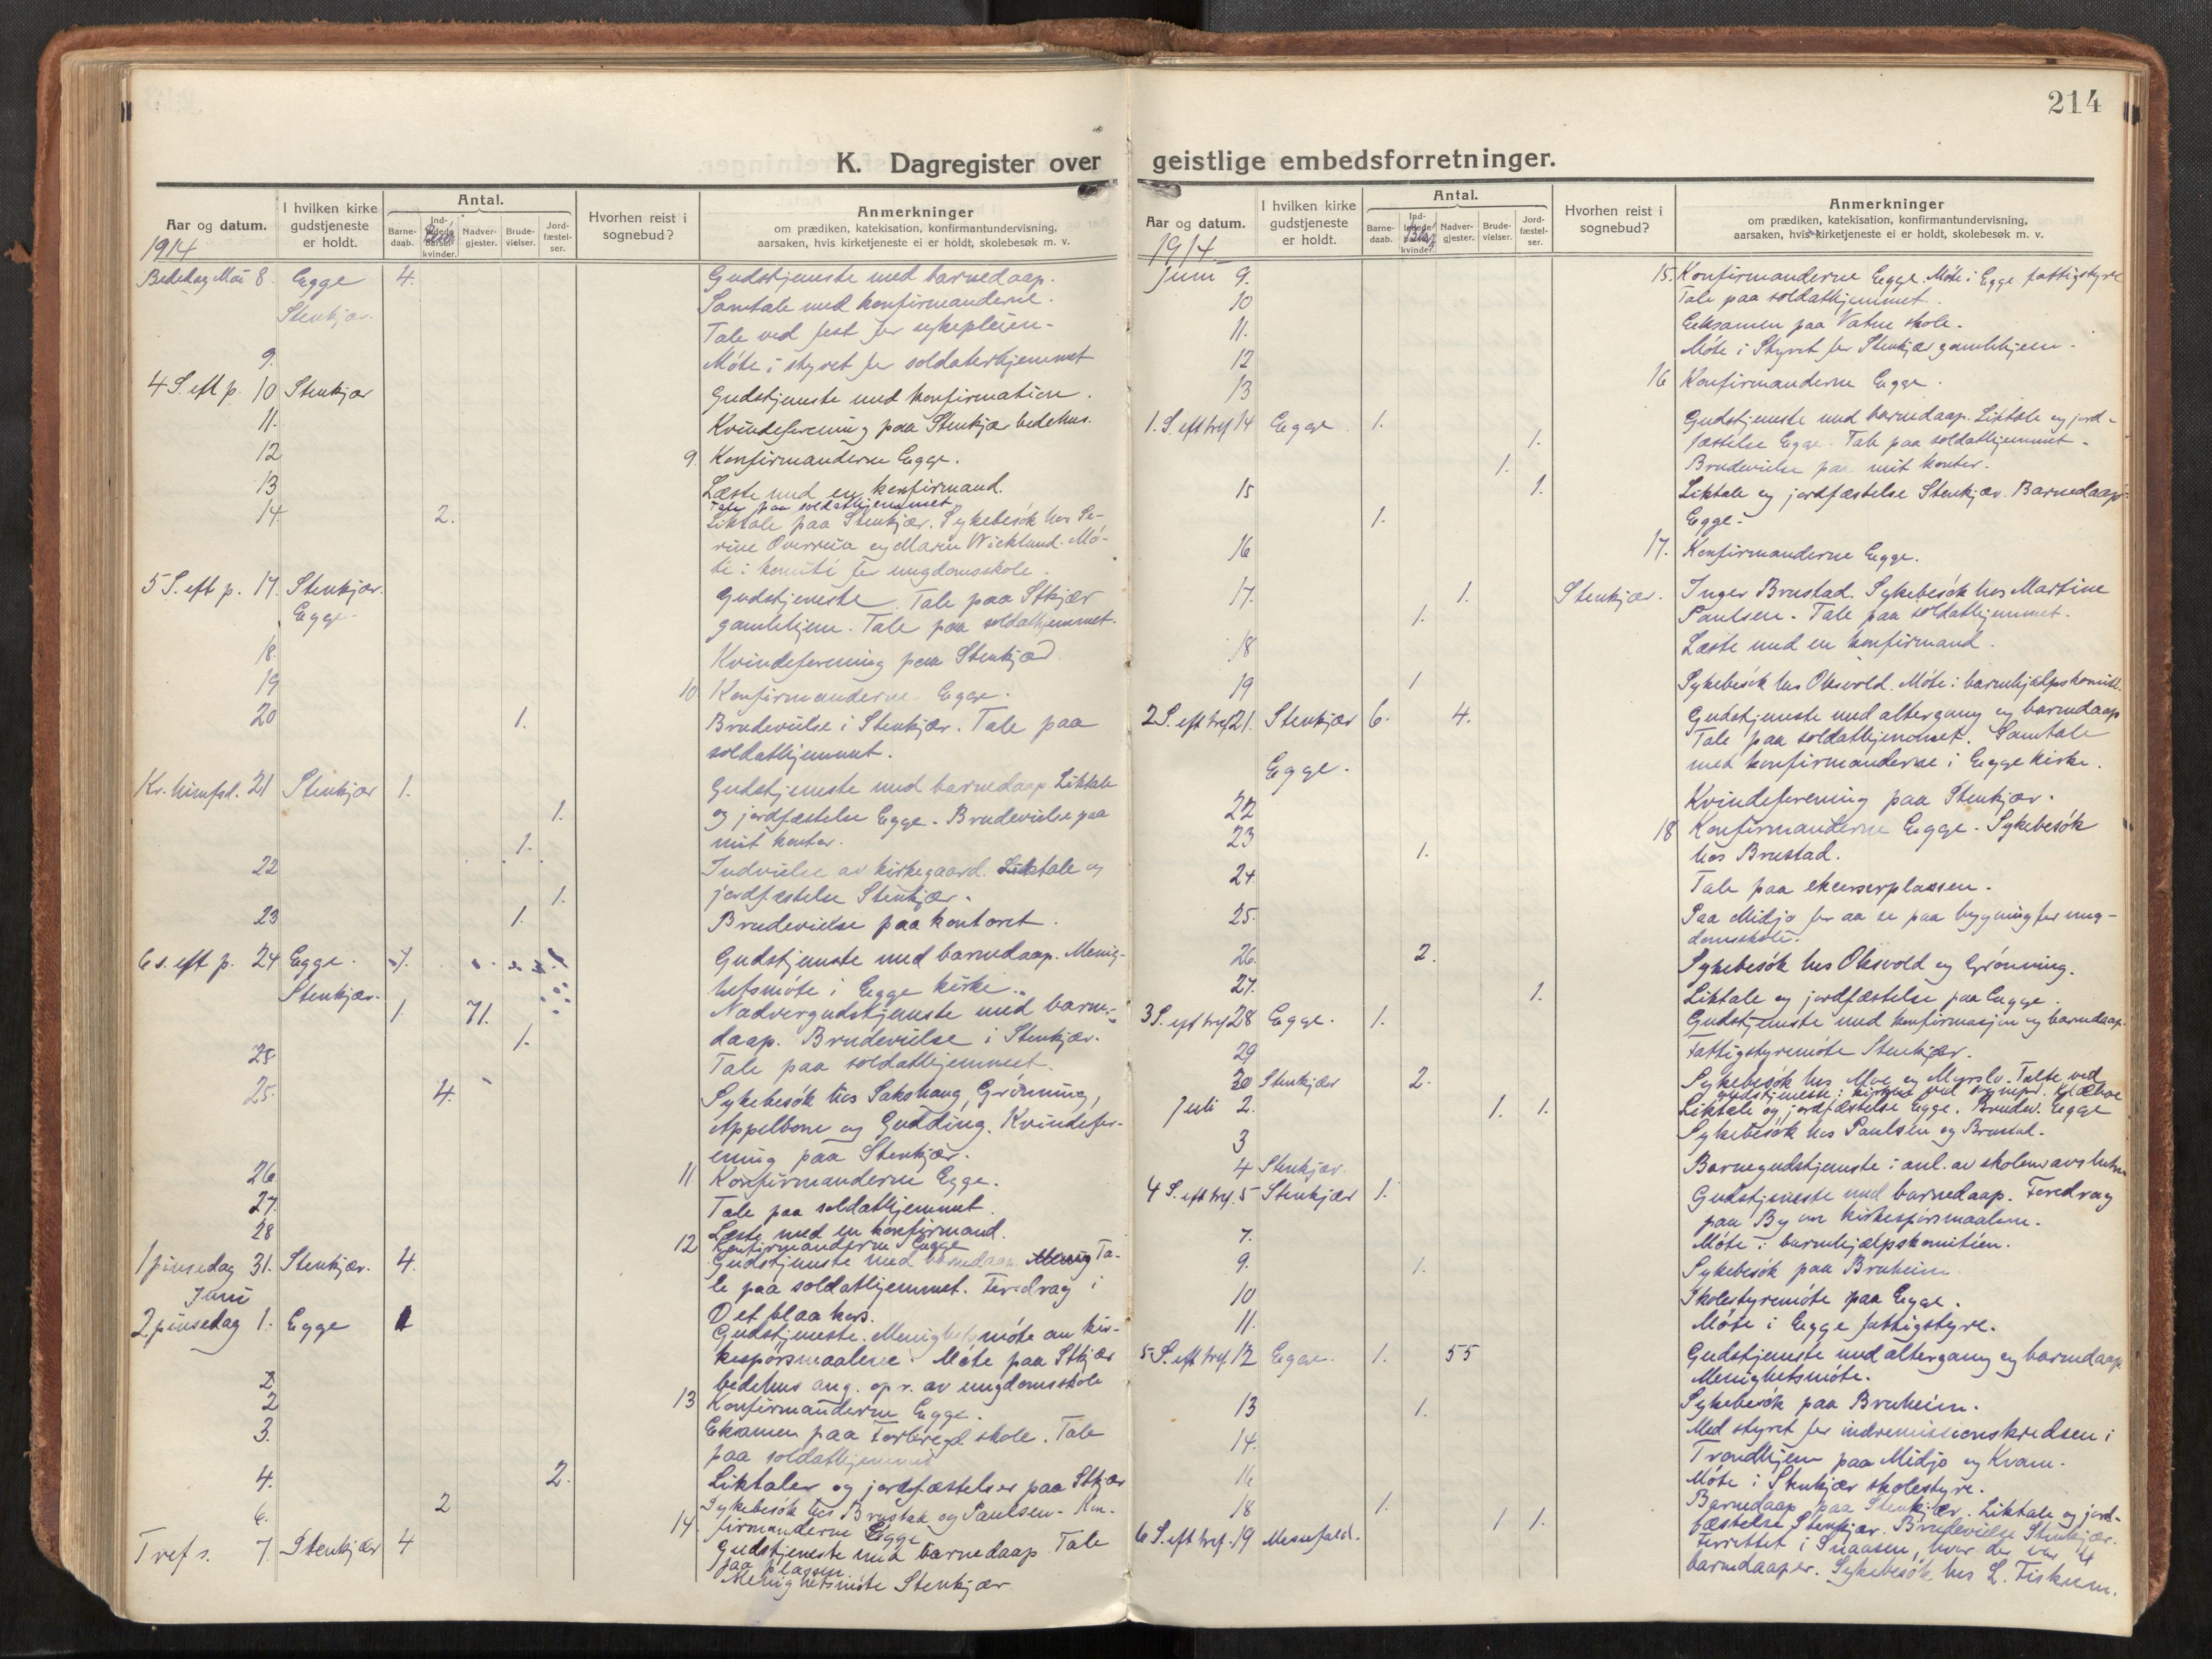 214
K. Dagregister over geistlige embedsforretninger.
Aar og datum.
I hvilken kirke gudstjeneste er holdt.
Antal.
Barnedaab.
Indledede barselkvinder.
Besøk
Nadvergjester.
Brudevielser.
Jordfæstelser.
Hvorhen reist i sognebud?
Anmerkninger
om prædiken, katekisation, konfirmantundervisning,
aarsaken, hvis kirketjeneste ei er holdt, skolebesøk m. v.
1914
Bededag Mai 8. Egge 4. Gudstjeneste med barnedaap.
Stenkjær. Samtale med konfirmanderne.
Tale ved fest for sykepleien.
9. Møte i styret for soldaterhjemmet
4 S. eft p. 10 Stenkjær Gudstjeneste med konfirmation.
11. Kvindeforening paa Stenkjær bedehus.
12 9. Konfirmanderne Egge.
13 Læste med en konfirmand.
Tale paa soldathjemmet
14 2. Liktale paa Stenkjær. Sykebesøk hos Se-
rine Overrein og Maren Wicklund. Mø-
te i komité for ungdomsskole.
5 S. eft p. 17. Stenkjær. Gudstjeneste. Tale paa Stkjær
Egge. gamlehjem. Tale paa soldathjemmet.
18. Kvindeforening paa Stenkjær.
19 10 Konfirmanderne Egge.
20 1. Brudevielse i Stenkjær. Tale paa
soldathjemmet.
Kr. himfsd. 21 Stenkjær 1. Gudstjeneste med barnedaap. Liktale
1. og jordfæstelse Egge. Brudevielse paa
1. mit kontor.
22 Indvielse av kirkegaard. Liktale og
1. jordfæstelse Stenkjær.
23 1. Brudevielse paa kontoret.
6 s. eft p. 24 Egge. Gudstjeneste med barnedaap. Menig-
Stenkjær. hetsmøte i Egge kirke.
1. 71. Nadvergudstjeneste med barne-
1. daap. Brudevielse i Stenkjær.
Tale paa soldathjemmet.
25. 4. Sykebesøk hos Sakshaug, Grønning,
Appelbone og Gudding. Kvindefor-
ening paa Stenkjær.
26 11 Konfirmanderne Egge.
27. Tale paa soldathjemmet.
28 Læste med en konfirmand.
12 Konfirmanderne Egge
1 pinsedag 31. Stenkjær. 4. Gudstjeneste med barnedaap. Ta-
Juni le paa soldathjemmet. Foredrag i
Det blaa kors.
2 pinsedag 1. Egge 1 Gudstjeneste. Menighetsmøte om kir-
kespørsmaalene. Møte paa Stkjær
2 bedehus ang. opr. av ungdomsskole
2 13 Konfirmanderne Egge.
3. Eksamen paa skole. Tale
paa soldathjemmet
4. 2. Liktaler og jordfæstelser paa Stkjær
6. 2 Sykebesøk hos Brustad og Paulsen. Kon-
14. firmanderne Egge
Tref s. 7. Stenkjær 4 Gudstjeneste med barnedaap Tale
paa plassen
Menighetsmøte Stenkjær
Aar og datum.
I hvilken kirke gudstjeneste er holdt.
Antal.
Barnedaab.
Indledede barselkvinder.
Nadvergjester.
Brudevielser.
Jordfæstelser.
Hvorhen reist i sognebud?
Anmerkninger
om prædiken, katekisation, konfirmantundervisning,
aarsaken, hvis kirketjeneste ei er holdt, skolebesøk m. v.
1914
Juni 9. 15. Konfirmanderne Egge. Møte i Egge fattigstyre
10 Tale paa soldathjemmet.
11. Eeksamen paa Vatne skole.
12 Møte i Styret for Stenkjær gamlehjem.
13 16 Konfirmanderne Egge.
1. S. eft tref 14 Egge. 1. Gudstjeneste med barnedaap. Liktale og jord-
1. fæstelse Egge. Tale paa soldathjemmet.
1. Brudevielse paa mit kontor.
15 1. Liktale og jordfæstelse Stenkjær. Barnedaap
1. Egge.
16 17. Konfirmanderne Egge.
17. 1. Stenkjær. Inger Brustad. Sykebesøk hos Martine
1. Paulsen. Tale paa soldathjemmet.
18 Læste med en konfirmand.
19 1 Sykebesøk hos Oksvold. Møte i barnehjælpskomité.
2 S. eft tref 21. Stenkjær 6. 4. Gudstjeneste med altergang og barnedaap
Tale paa soldathjemmet. Samtale
Egge. med konfirmanderne i Egge kirke.
22 Kvindeforening paa Stenkjær.
23 18 Konfirmanderne Egge. Sykebesøk
1. hos Brustad.
24. Tale paa ekserserplassen.
25. Paa Midjo for aa se paa bygning for ung-
domsskole.
26. 2. Sykebesøk hos Oksvold og Grønning.
27. 1. Liktale og jordfæstelse paa Egge.
3 S. eft tref 28 Egge. 1. Gudstjeneste med konfirmasjon og barnedaap.
29 Fattigstyremøte Stenkjær.
30 Stenkjær 2. Sykebesøk hos Moe og Myrslo. Talte ved
gudstjeneste i kirken ved Klæboe
Juli 2. 1. 1. Liktale og jordfæstelse Egge. Brudev. Egge
3 Sykebesøk hos Paulsen og Brustad.
4 Stenkjær. Barnegudstjeneste i anl. av skolens avslutn
4 S. eft tref. 5 Stenkjær 1. Gudstjeneste med barnedaap. Foredrag
paa By om kirkespørsmaalene.
7. Møte i barnehjælpskomitéen.
9. 1. Sykebesøk paa Bruheim
10 Skolestyremøte paa Egge.
11. Møte i Egge fattigstyre.
5 S. eft tref. 12 Egge. 1. 55 Gudstjeneste med altergang og barnedaap
Menighetsmøte.
13 1. Sykebesøk paa Bruheim.
14. Med styret for indremissionskredsen i
Trondhjem paa Midjo og Kvam.
16 Møte i Stenkjær skolestyre.
18 1. Barnedaap paa Stenkjær. Liktale og jord-
1 1. fæstelse Stenkjær. Brudevielse Stenkjær.
6 S. eft tref. 19 Messefald. Forrettet i Snaasen, hvor der var 4
barnedaaper. Sykebesøk hos L. Fiskum.